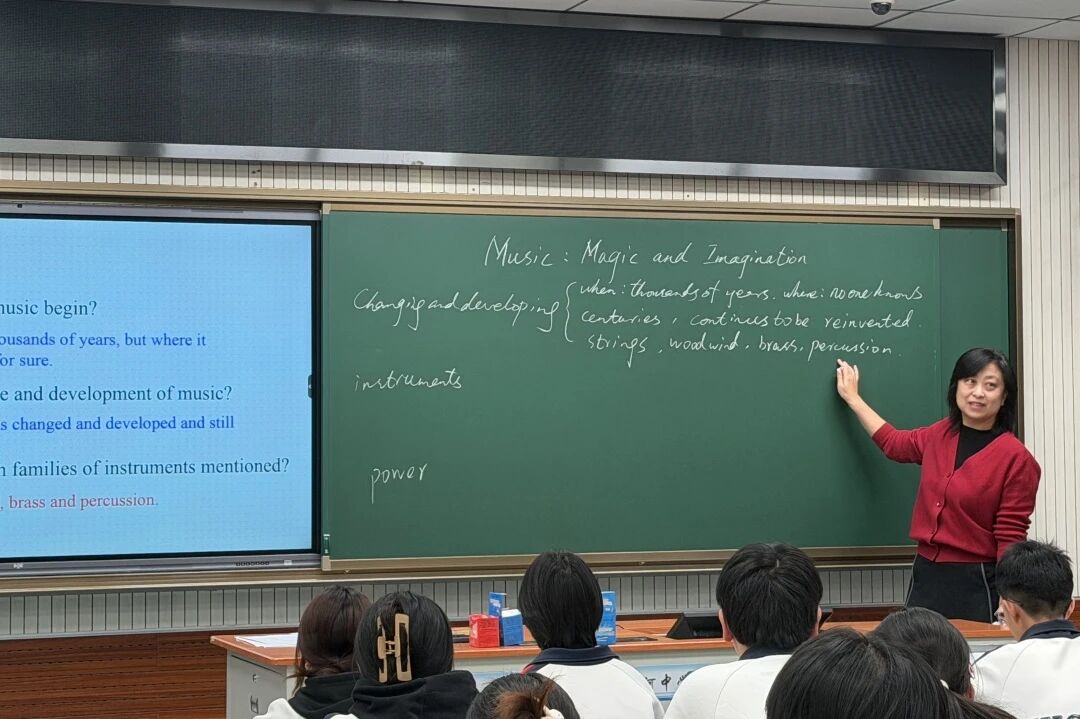 music begin?
ousands of years, but where it
for sure.
e and development of music?
s changed and developed and still
families of instruments mentioned?
, brass and percussion.
Music: Magic and Imagination
Changing and developing { when: thousands of years. where: no one knows
centuries, continues to be reinvented.
strings, woodwind, brass, percussion.
instruments
power
中学